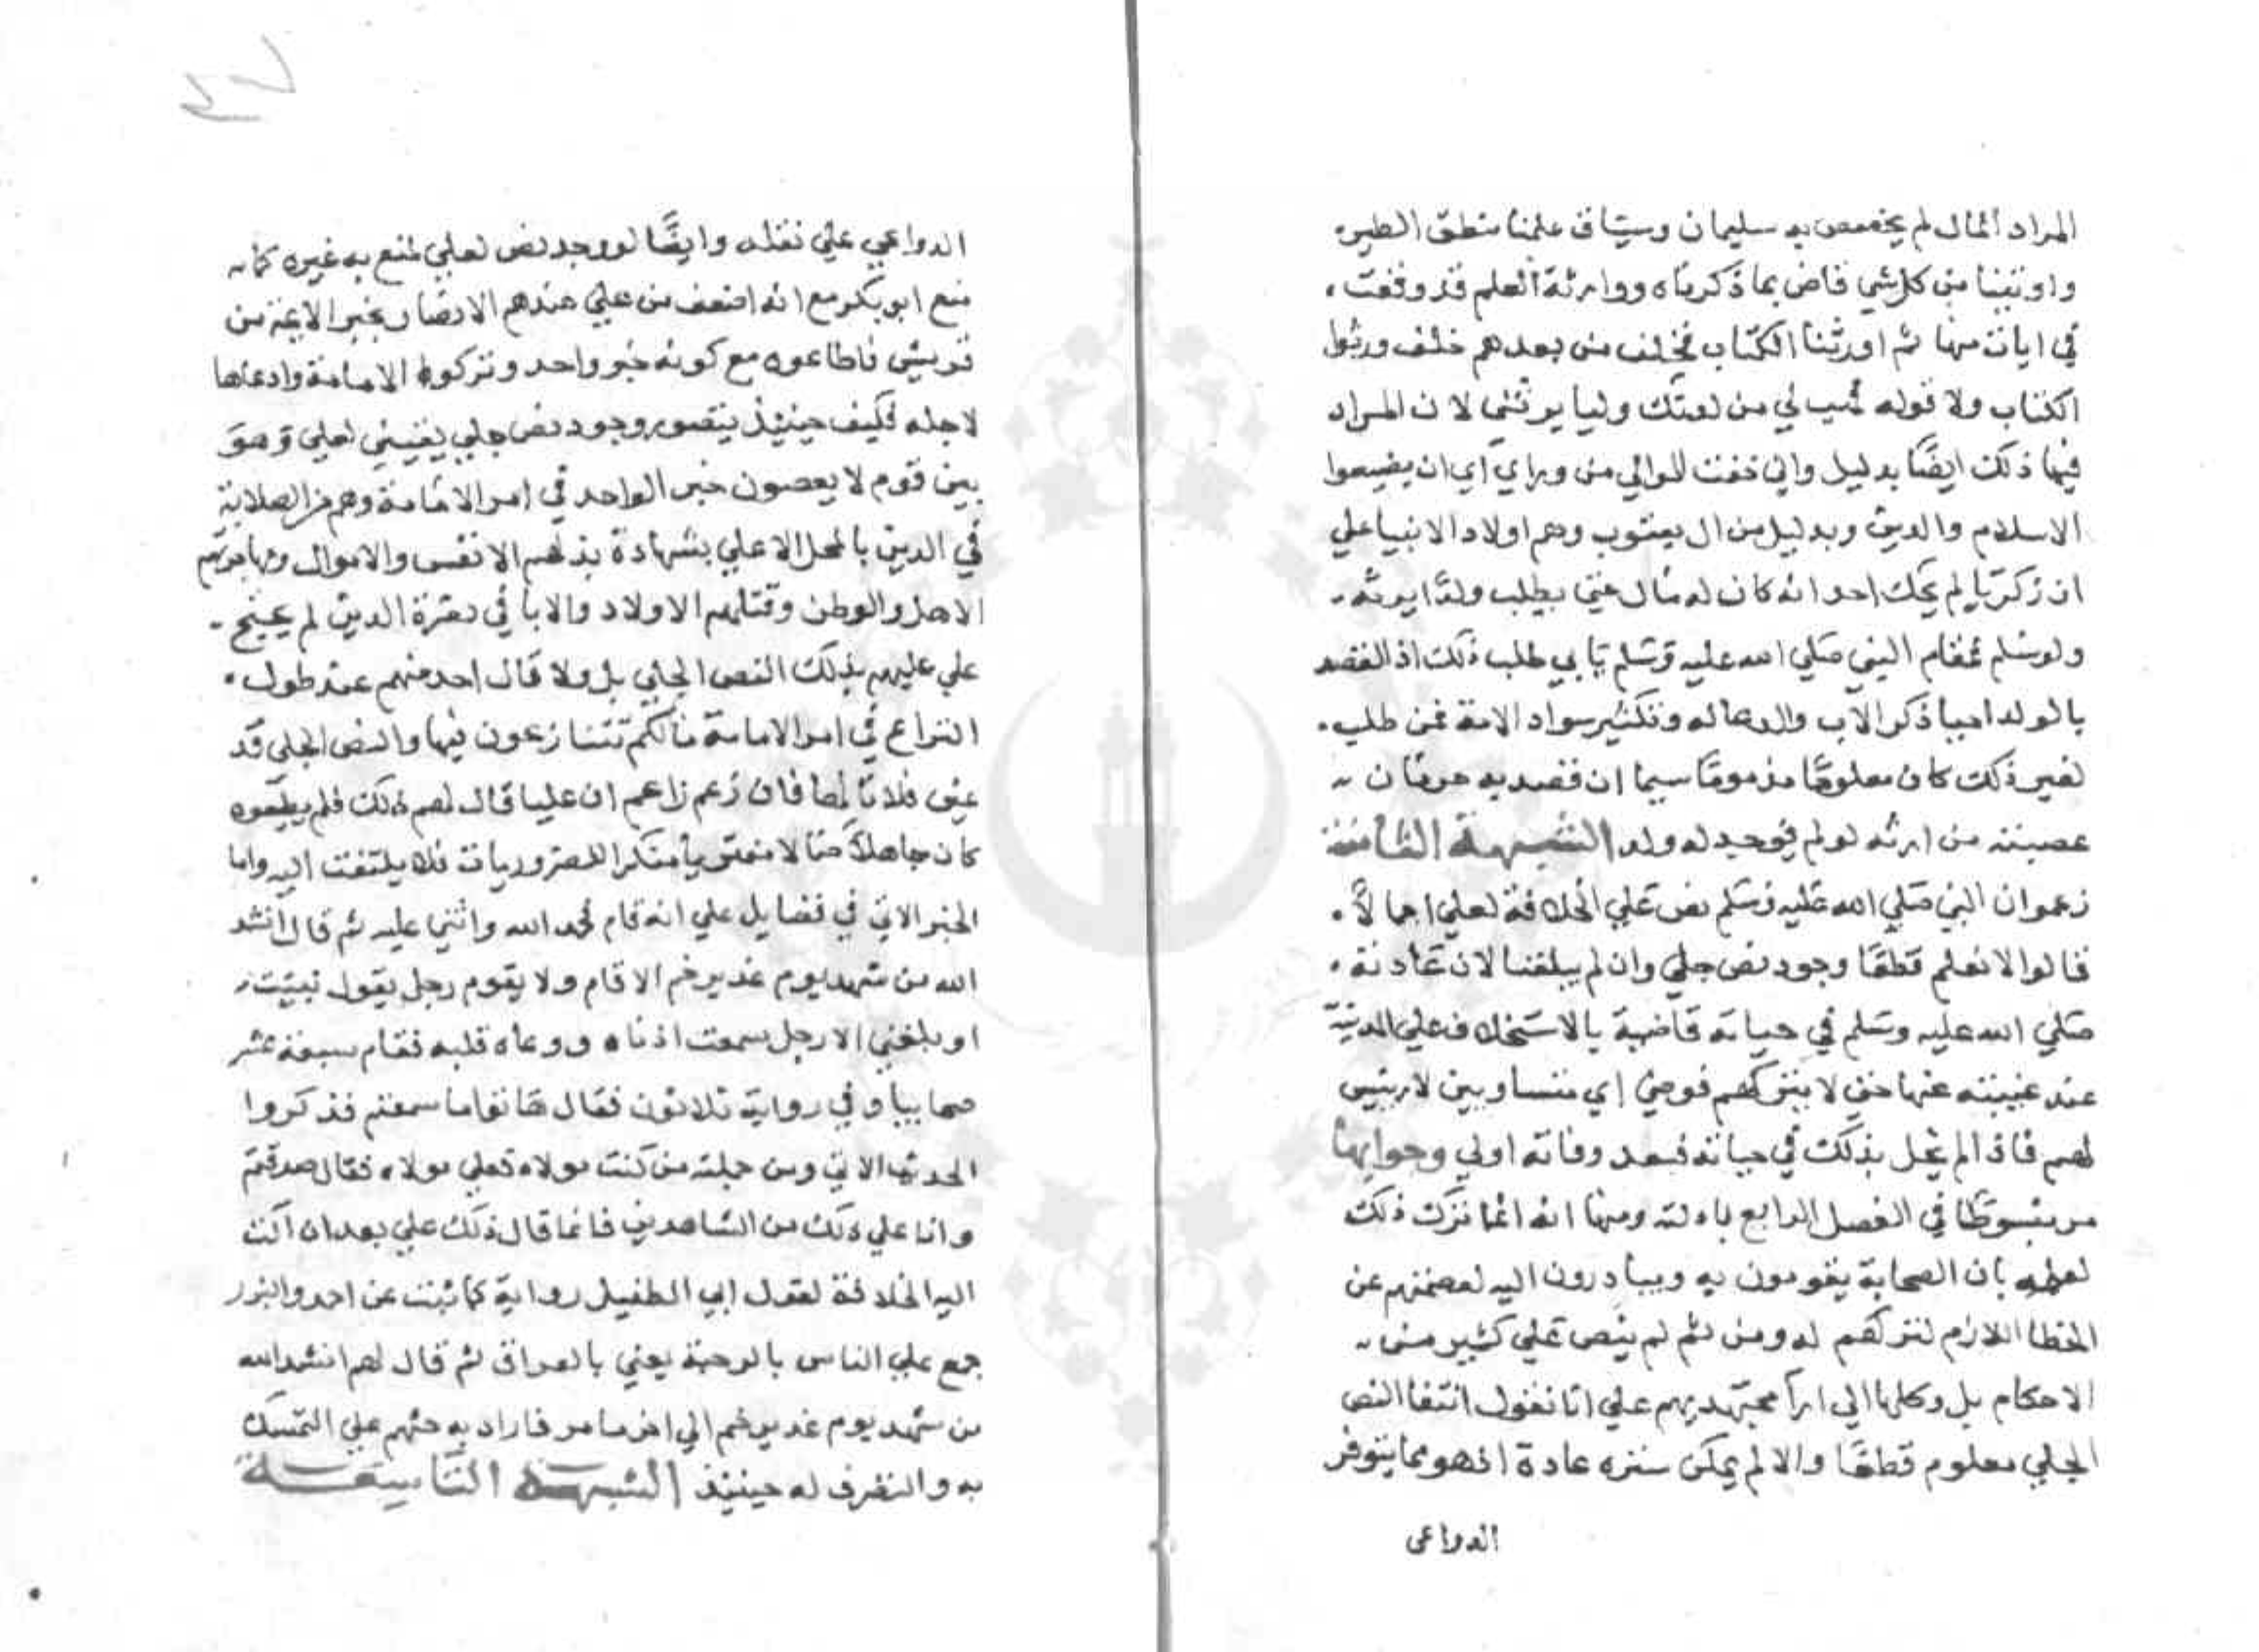 المراد المال لم يخصص به سليمان وسياق علمنا منطق الطير
واوتينا من كل شي قاض بما ذكرناه ووراثة العلم قد وقعت
في ايات منها ثم اورثنا الكتاب فخلف من بعدهم خلف ورثوا
الكتاب ولا قوله فهب لي من لدنك وليا يرثني لان المراد
فيها ذلك ايضًا بدليل واني خفت الموالي من وراي اي ان يضيعوا
الاسلام والدين وبدليل من ال يعقوب وهم اولاد الانبيا علي
ان زكريا لم يحك احد انه كان له مال حتي يطلب ولدًا يرثه
ولو سلم فمقام النبي صلي الله عليه وسلم يابي طلب ذلك اذ القصد
بالولد احيا ذكر الاب والدعا له وتكثير سواد الامة فمن طلب
لغير ذلك كان ملومًا مذمومًا سيما ان قصد به حرمان
عصبته من ارثه لو لم يوجد له ولد الشبهة الثامنة
زعموا ان النبي صلي الله عليه وسلم نص علي الخلافة لعلي اجمالاً
قالوا لانعلم قطعًا وجود نص جلي وان لم يبلغنا لان عادته
صلي الله عليه وسلم في حياته قاضية بالاستخلاف علي المدينة
عند غيبته عنها حتي لا يتركهم فوضي اي متساويين لا رييس
لهم فاذا لم يخل بذلك في حياته فبعد وفاته اولي وجوابها
مر مبسوطًا في الفصل الرابع بادلته ومنها انه انما ترك ذلك
لعلمه بان الصحابة يقومون به ويبادرون اليه لعصمتهم عن
الخطا اللازم لتركهم له ومن ثم لم ينص علي كثير من
الاحكام بل وكلها الي ارا مجتهديهم علي انا نقول انتفا النص
الجلي معلوم قطعًا والا لم يمكن ستره عادة اذ هو مما يتوفر
الدواعي
الدواعي علي نقله وايضًا لو وجد نص لعلي لمنع به غيره كما
منع ابو بكر مع انه اضعف من علي عندهم الانصار بخبر الايمة من
قريش فاطاعوه مع كونه خبر واحد وتركوا الامامة وادعاها
لاجله فكيف حينيذ يتصور وجود نص جلي يقيني لعلي وهو
بين قوم لا يعصون خبر الواحد في امر الامامة وهم من الصلابة
في الدين بالمحل الاعلي بشهادة بذلهم الانفس والاموال ومهاجرتهم
الاهل والوطن وقتلهم الاولاد والابا في نصرة الدين لم يحتج
علي عليهم بذلك النص الجلي بل ولا قال احد منهم عند طول
النزاع في امر الامامة ما لكم تتنازعون فيها والنص الجلي قد
عين فلانًا لها فان زعم زاعم ان عليا قال لهم ذلك فلم يطيعوه
كان جاهلاً ضالا مفتريا منكرا للضروريات فلا يلتفت اليه واما
الخبر الاتي في فضايل علي انه قام فحمد الله واثني عليه ثم قال انشد
الله من شهد يوم غدير خم الا قام ولا يقوم رجل يقول نبيت
او بلغني الا رجل سمعت اذناه ووعاه قلبه فقام سبعة عشر
صحابيا وفي رواية ثلاثون فقال هاتوا ما سمعتم فذكروا
الحديث الاتي ومن جملته من كنت مولاه فعلي مولاه فقال صدقتم
وانا علي ذلك من الشاهدين فانما قال ذلك علي بعد ان الت
اليه الخلافة لقول ابي الطفيل رواية كما ثبت عن احمد والبزار
جمع علي الناس بالرحبة يعني بالعراق ثم قال لهم انشد الله
من شهد يوم غدير خم الي اخر ما مر فاراد به حثهم علي التمسك
به والنصرة له حينيذ الشبهة التاسعة